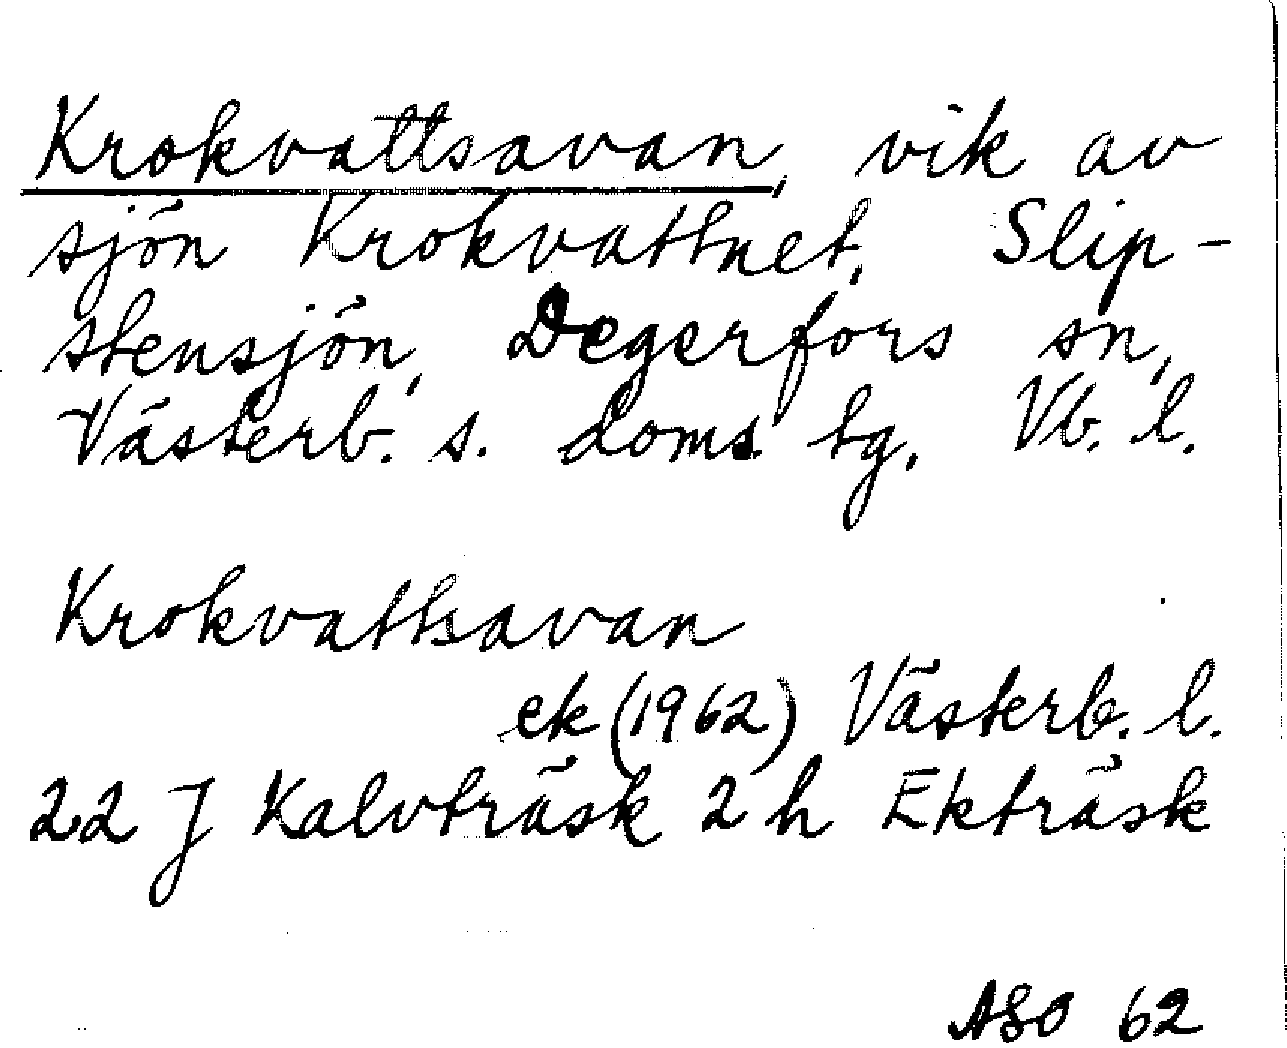 Krokvattsavan, vik av
sjön Krokvattnet, Slip-
stensjön, Degerfors sn,
Västerb. s. doms. tg. Vb. l.
Krokvattsavan
ek (1962) Västerb. l.
22 J Kalvträsk 2 h Ekträsk
ASO 62